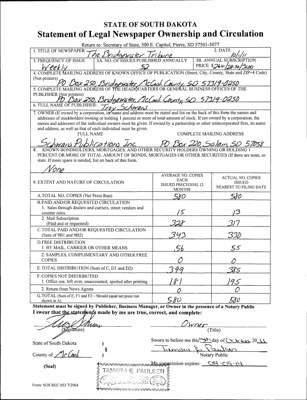 STATE OF SOUTH DAKOTA
Statement of Legal Newspaper Ownership and Circulation
Return to: Secretary of State, 500 E. Capitol, Pierre, SD 57501-5077
1. TITLE OF NEWSPAPER The Bridgewater Tribune
2. DATE
3. FREQUENCY OF ISSUE Weekly
3A. NO. OF ISSUES PUBLISHED ANNUALLY 52
3B. ANNUAL SUBSCRIPTION PRICE
4. COMPLETE MAILING ADDRESS OF KNOWN OFFICE OF PUBLICATION (Street, City, County, State and ZIP+4 Code) (Not printers)
PO Box 250, Bridgewater, McCook County, SD 57319-0250
5. COMPLETE MAILING ADDRESS OF THE HEADQUARTERS OR GENERAL BUSINESS OFFICES OF THE PUBLISHER (Not printers)
PO Box 250, Bridgewater, McCook County, SD 57319-0250
6. FULL NAME OF PUBLISHER: Troy Schwans
7. OWNER (If owned by a corporation, its name and address must be stated and
addresses of stockholders owning or holding 1 percent or more of total amount of stock. If not owned by a corporation, the
names and addresses of the individual owners must be given. If owned by a partnership or other unincorporated firm, its name
and address, as well as that of each individual must be given.
FULL NAME
COMPLETE MAILING ADDRESS
Schwans Publications, Inc. PO Box 220, Salem, SD 57058
8. KNOWN BONDHOLDERS, MORTGAGEES, AND OTHER SECURITY HOLDERS OWNING OR HOLDING 1
PERCENT OR MORE OF TOTAL AMOUNT OF BONDS, MORTGAGES OR OTHER SECURITIES (If there are none, so
state. If more space is needed, list on back of this form.
None
9. EXTENT AND NATURE OF CIRCULATION
AVERAGE NO. COPIES EACH ISSUED PRECEDING 12 MONTHS
ACTUAL NO. COPIES ISSUED NEAREST TO FILING DATE
A. TOTAL NO. COPIES (Net Press Run) 580 580
B. PAID AND/OR REQUESTED CIRCULATION
1. Sales through dealers and carriers, street vendors and counter sales. 15 13
2. Mail Subscription (Paid and or requested) 328 317
C. TOTAL PAID AND/OR REQUESTED CIRCULATION (Sum of 9B1 and 9B2) 343 330
D. FREE DISTRIBUTION
1. BY MAIL, CARRIER OR OTHER MEANS 56 55
2. SAMPLES, COMPLIMENTARY AND OTHER FREE COPIES 0 0
E. TOTAL DISTRIBUTION (Sum of C, D1 and D2) 399 385
F. COPIES NOT DISTRIBUTED
1. Office use, left over, unaccounted, spoiled after printing 181 195
2. Return from News Agents 0 0
G. TOTAL (Sum of E, F1 and F2 - Should equal net press run shown in A) 580 580
Statement must be signed by Publisher, Business Manager, or Owner in the presence of a Notary Public
I swear that the statements made by me are true, correct, and complete:
Owner
(Signature) (Title)
State of South Dakota )
County of McCook )
Sworn to before me this
Notary Public
My commission expires:
TAMARA E. PAULSEN
Form: SOS REC 051 7/2004